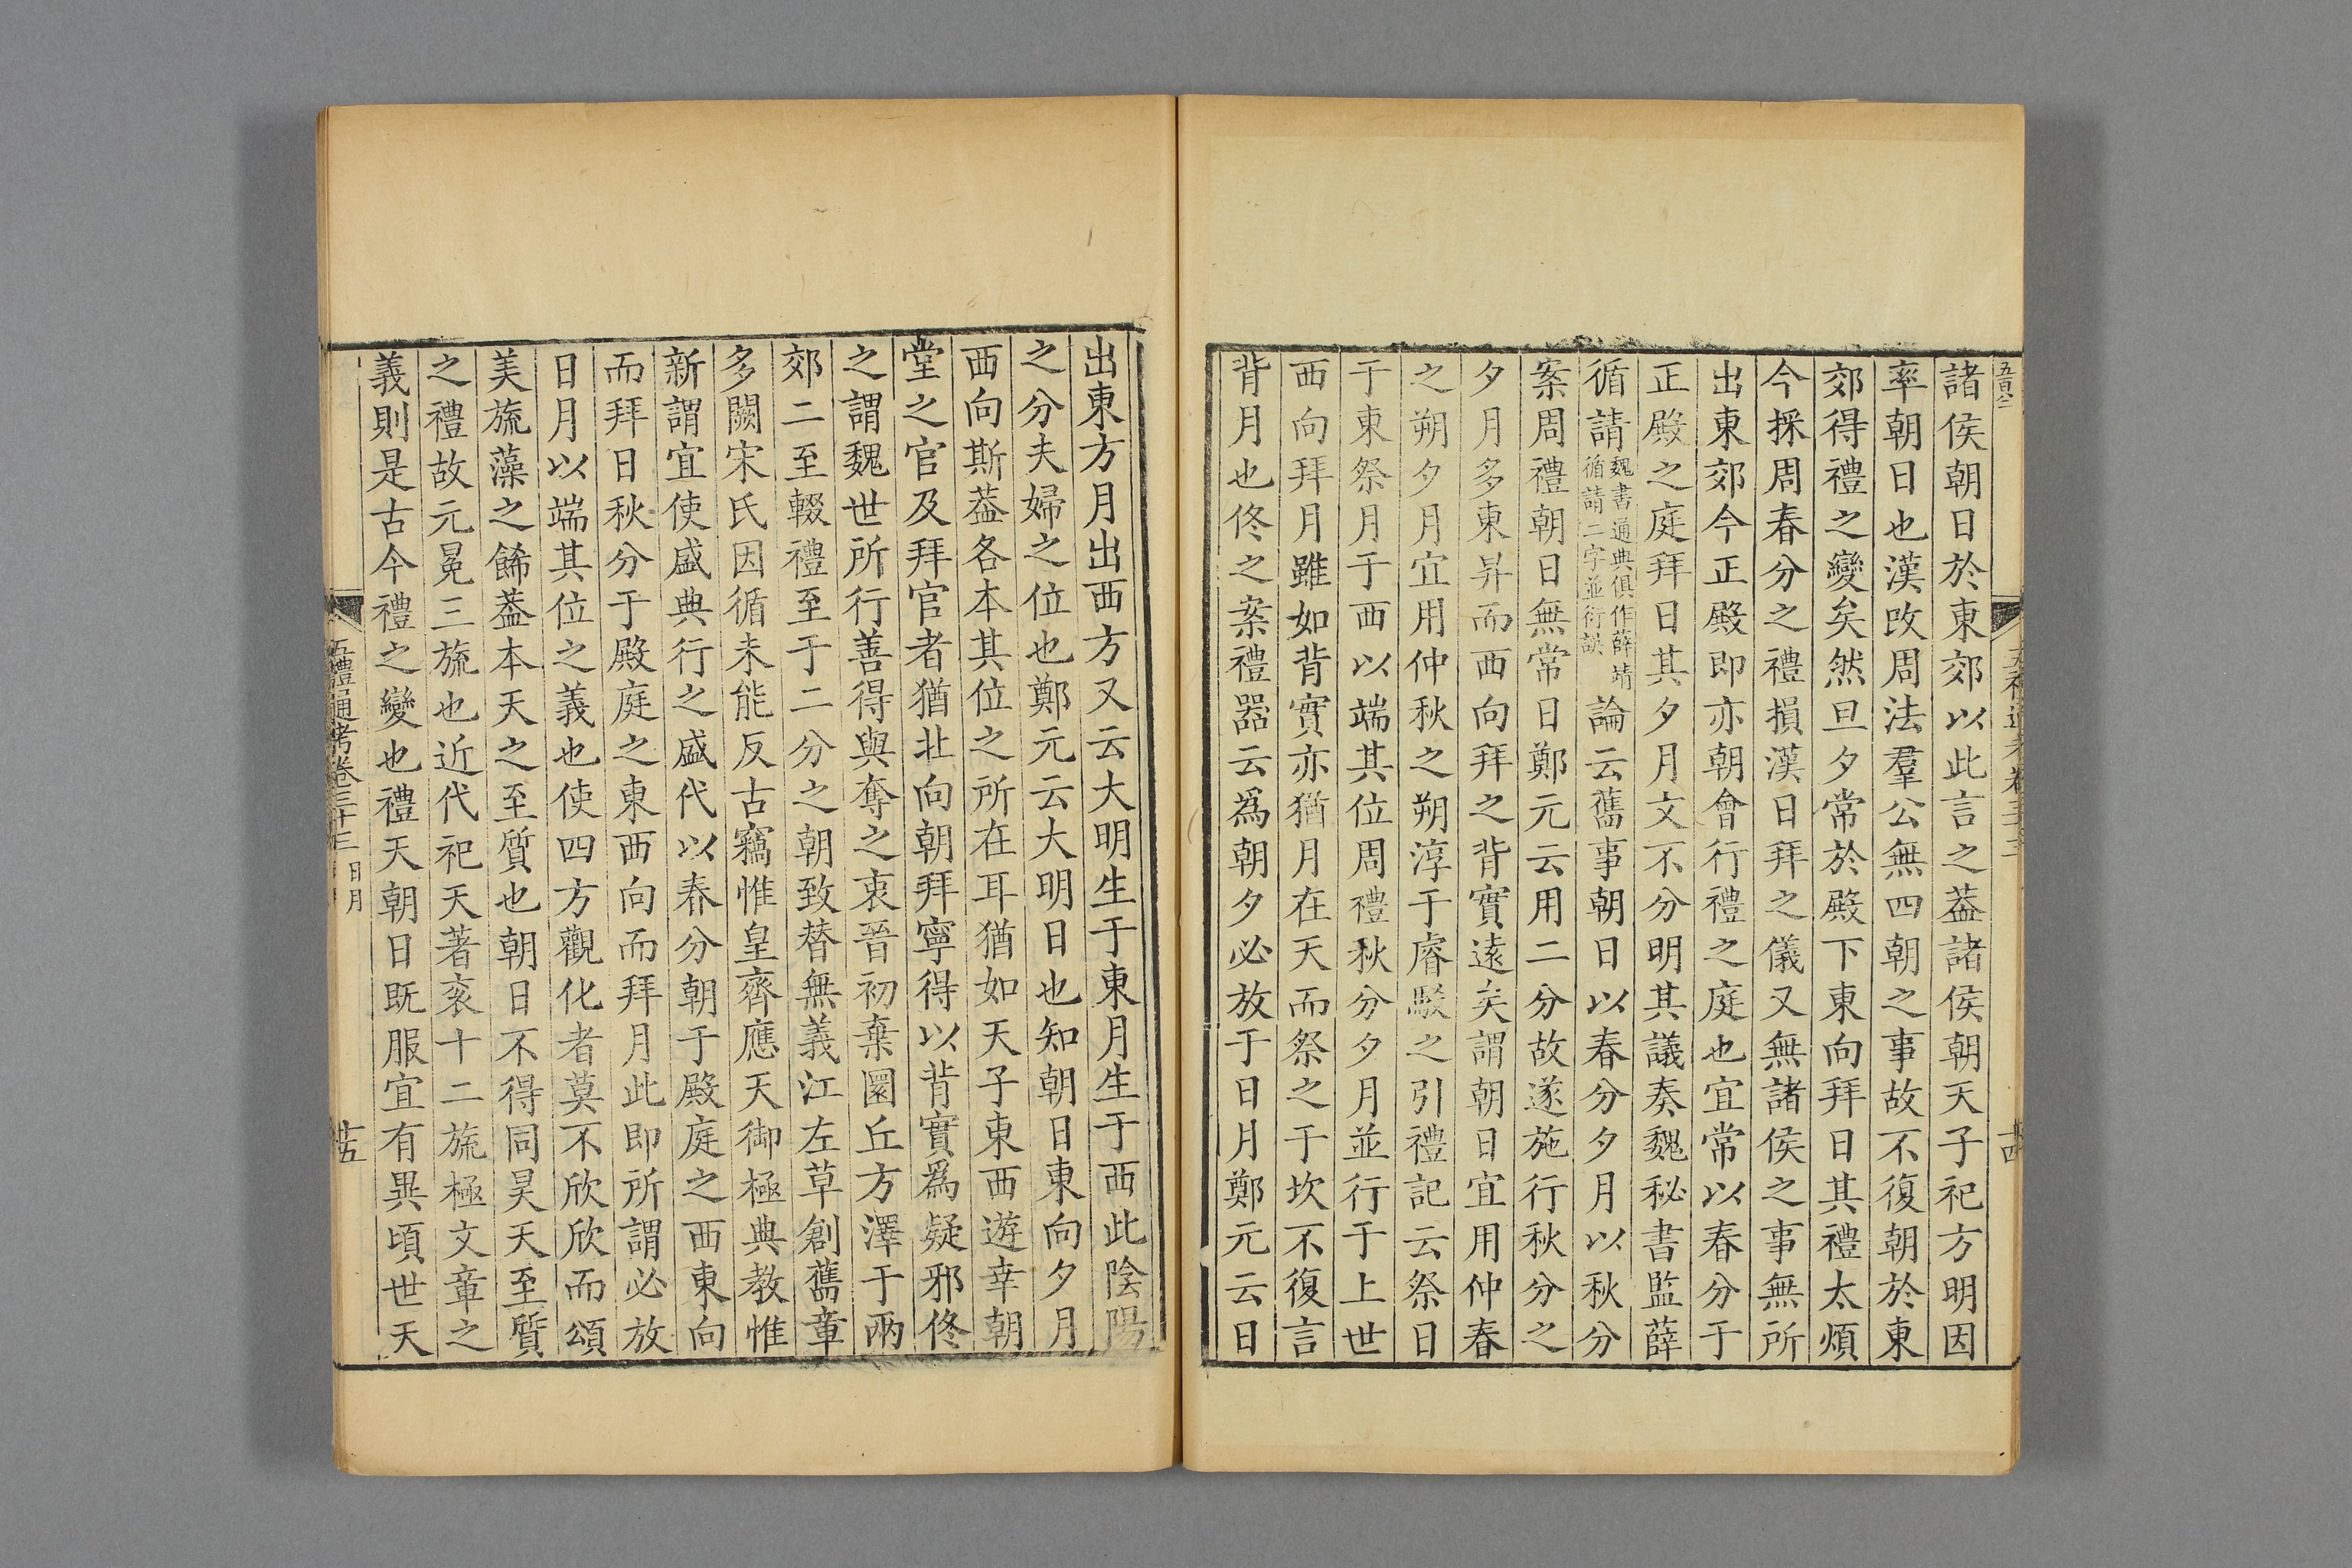 諸侯朝日於東郊以此言之葢諸侯朝天子祀方明因
率朝日也漢改周法羣公無四朝之事故不復朝於東
郊得禮之變矣然旦夕常於殿下東向拜日其禮太煩
今採周春分之禮損漢日拜之儀又無諸侯之事無所
出東郊今正殿即亦朝會行禮之庭也宜常以春分于
正殿之庭拜日其夕月文不分明其議奏魏秘書監薛
循請魏書通典俱作薛靖循請二字並衍誤論云舊事朝日以春分夕月以秋分
案周禮朝日無常日鄭元云用二分故遂施行秋分之
夕月多東昇而西向拜之背實遠矣謂朝日宜用仲春
之朔夕月宜用仲秋之朔淳于睿駁之引禮記云祭日
于東祭月于西以端其位周禮秋分夕月並行于上世
西向拜月雖如背實亦猶月在天而祭之于坎不復言
背月也佟之案禮器云爲朝夕必放于日月鄭元云日
出東方月出西方又云大明生于東月生于西此陰陽
之分夫婦之位也鄭元云大明日也知朝日東向夕月
西向斯葢各本其位之所在耳猶如天子東西遊幸朝
堂之官及拜官者猶北向朝拜寧得以背實爲疑邪佟
之謂魏世所行善得與奪之衷晉初棄圜丘方澤于兩
郊二至輟禮至于二分之朝致替無義江左草創舊章
多闕宋氏因循未能反古竊惟皇齊應天御極典教惟
新謂宜使盛典行之盛代以春分朝于殿庭之西東向
而拜日秋分于殿庭之東西向而拜月此即所謂必放
日月以端其位之義也使四方觀化者莫不欣欣而頌
美旒藻之餙葢本天之至質也朝日不得同昊天至質
之禮故元冕三旒也近代祀天著衮十二旒極文章之
義則是古今禮之變也禮天朝日既服宜有異頃世天
五禮通考卷三十三 日月
十五